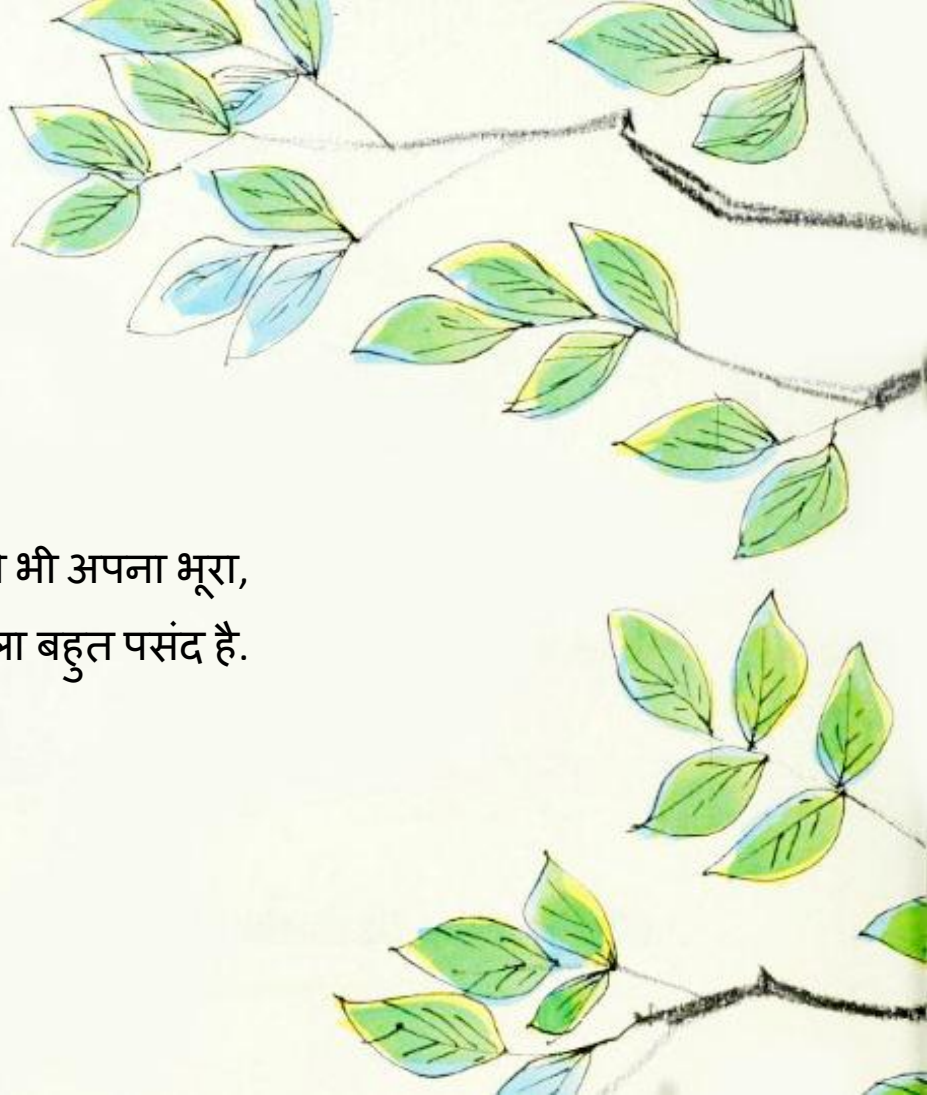 भी अपना भूरा,
बहुत पसंद है.